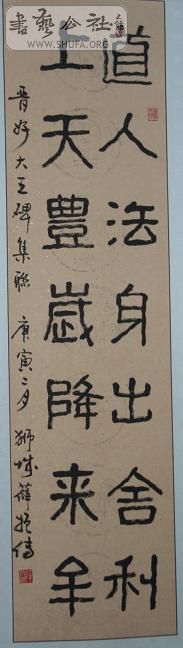 書藝公社
WWW.SHUFA.ORG
道人法身出舍利
上天豊歲降来牟
晋好大王碑集聯 庚寅二月 獅城薛振傳